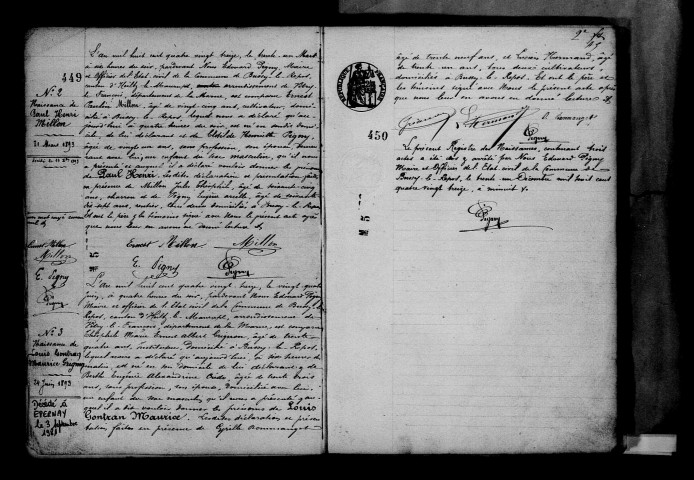 449
N° 2
Naissance de
Paul Henri
Millon
31 Mars 1893
L'an mil huit cent quatre vingt treize, le trente-un Mars
à heures du soir, pardevant Nous Edouard Pigny, Maire
et Officier de l'Etat civil de la Commune de Bussy-le-Repos,
canton d'Heiltz-le-Maurupt, arrondissement de Vitry-
le-François, département de la Marne, est comparu Ernest
Paulin Millon, âgé de vingt-cinq ans, cultivateur, domi-
cilié à Bussy-le-Repos, lequel nous a déclaré qu'au-
jourd'hui, à quatre heures du soir, est né en son domicile
de lui déclarant et de Clotilde Henriette Pigny,
âgée de vingt-un ans, sans profession, son épouse,
un enfant du sexe masculin, qu'il nous a
présenté et auquel il a déclaré vouloir donner les prénoms
de Paul Henri. Lesdites déclaration et présentation faites
en présence de Millon Jules Théophile, âgé de soixante-cinq
ans, charron et de Pigny Eugène
sept ans, rentier, tous deux domiciliés à Bussy-le-Repos
et ont le père et les témoins signé avec Nous le présent acte après
que nous leur en avons donné lecture.
Ernest Millon
Millon
E. Pigny
Pigny
Ernest Millon
Millon
E. Pigny
Pigny
N° 3
Naissance de
Louis Gontran
Maurice Grignon
24 Juin 1893
Décédé à
EPERNAY
le 3 Septembre
1981
L'an mil huit cent quatre vingt treize, le vingt quatre
juin, à quatre heures du soir, pardevant Nous Edouard Pigny
Maire et officier de l'Etat civil de la Commune de Bussy-le-
Repos, canton d'Heiltz-le-Maurupt, arrondissement de
Vitry-le-François, département de la Marne, est comparu
Marie Ernest Albert Grignon, âgé de trente-
quatre ans, instituteur, domicilié à Bussy-le-Repos,
lequel nous a déclaré qu'aujourd'hui, à dix heures du
matin, est né en son domicile de lui déclarant et de
Berthe Eugénie Alexandrine âgée de trente trois
ans, sans profession, son épouse, domiciliée avec lui,
un enfant du sexe masculin qu'il nous a présenté et au-
quel il a dit vouloir donner les prénoms de Louis
Gontran Maurice. Lesdites déclaration et présen-
tation faites en présence de Cyrille
450
âgé de trente neuf ans, et Lucien Hermand, âgé
de trente un ans, tous deux cultivateurs,
domiciliés à Bussy-le-Repos. Et ont le père et
les témoins signé avec Nous le présent acte après
que nous leur en avons donné lecture.
Hermand
Pigny
Le présent Registre des Naissances, contenant trois
actes a été clos et arrêté par Nous Edouard Pigny
Maire et Officier de l'Etat civil de la Commune de
Bussy-le-Repos, le trente un Décembre mil huit cent
quatre vingt treize, à minuit.
Pigny